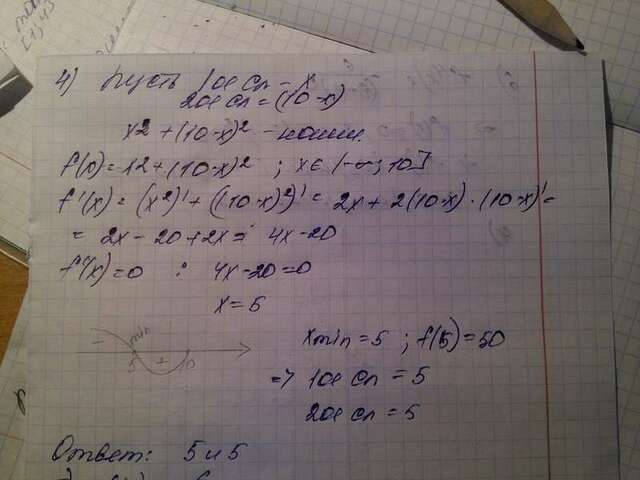 4) Пусть 1ое сл – x
2ое сл = (10-x)
x2 + (10-x)² – наим.
f(x) = x2 + (10-x)² ; x ∈ (-∞; 10]
f'(x) = (x²)' + ((10-x)²)' = 2x + 2(10-x) · (10-x)' =
= 2x - 20 + 2x = 4x - 20
f'(x) = 0 : 4x - 20 = 0
x = 5
– min
5 + 10
xmin = 5 ; f(5) = 50
=> 1ое сл = 5
2ое сл = 5
Ответ: 5 и 5